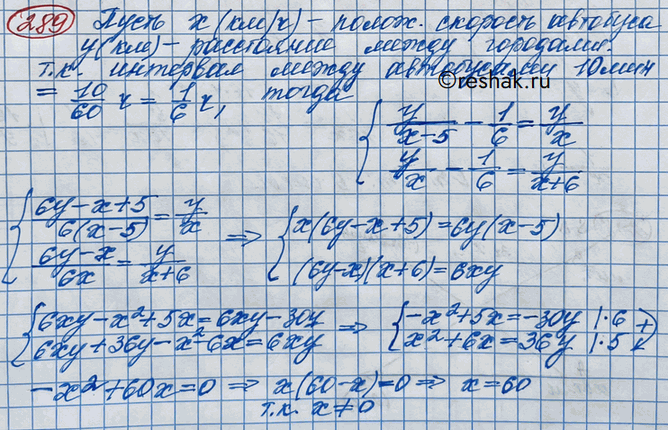 289 Пусть x (км/ч) – полож. скорость автобуса
y (км) – расстояние между городами.
т.к. интервал между автобусами 10 мин
= 10/60 ч = 1/6 ч, тогда
{ y/(x-5) - 1/6 = y/x
y/x - 1/6 = y/(x+6)
{ (6y-x+5)/(6(x-5)) = y/x
(6y-x)/(6x) = y/(x+6)
⇒ { x(6y-x+5) = 6y(x-5)
(6y-x)(x+6) = 6xy
{ 6xy-x²+5x=6xy-30y
6xy+36y-x²-6x=6xy
⇒ { -x²+5x=-30y |·6
x²+6x=36y |·5 +
-x²+60x=0 ⇒ x(60-x)=0 ⇒ x=60
т.к. x≠0
reshak.ru